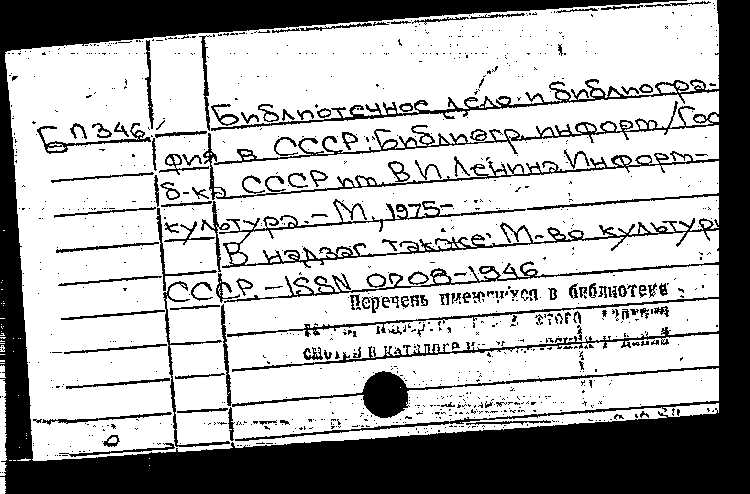 Библиотечное дело и библиогра-
Б П346
фия в СССР: Библиогр. информ / Гос
б-ка СССР им. В.И. Ленина. Информ-
культура. - М., 1975-
В надзаг. также: М-во культуры
СССР. - ISSN 0208-1946
Перечень имеющихся в библиотеке
этого
смотри в каталоге